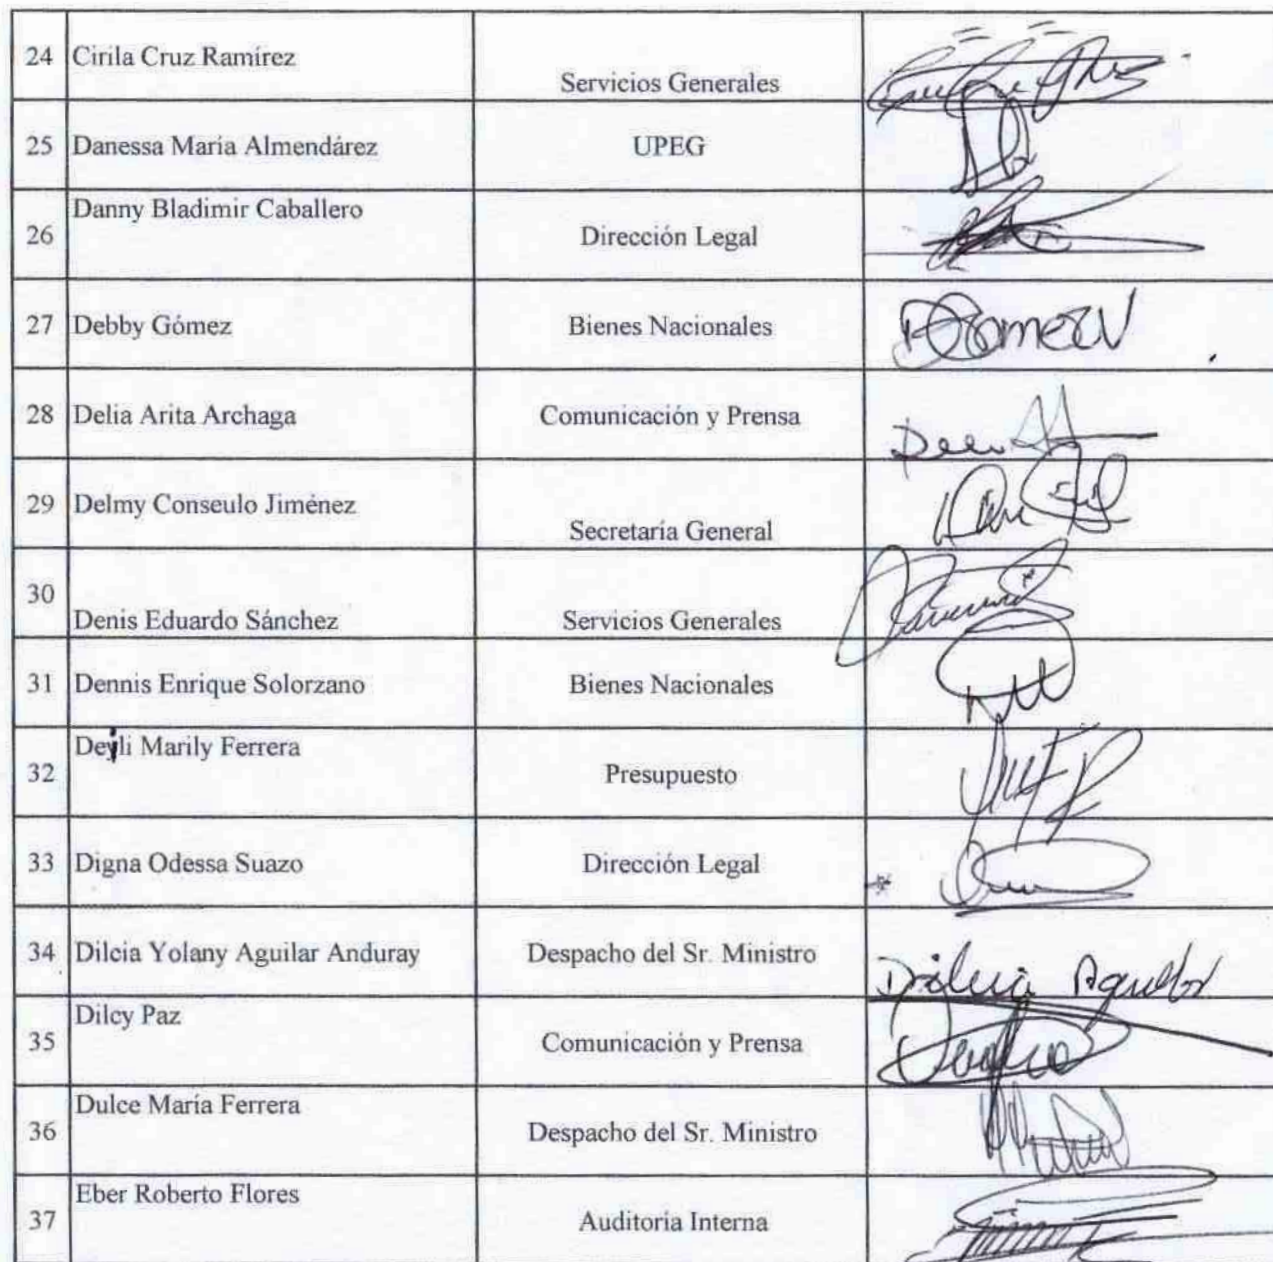 24 Cirila Cruz Ramírez Servicios Generales
25 Danessa María Almendárez UPEG
26 Danny Bladimir Caballero Dirección Legal
27 Debby Gómez Bienes Nacionales DGomezV
28 Delia Arita Archaga Comunicación y Prensa
29 Delmy Conseulo Jiménez Secretaría General
30 Denis Eduardo Sánchez Servicios Generales
31 Dennis Enrique Solorzano Bienes Nacionales
32 Deyli Marily Ferrera Presupuesto
33 Digna Odessa Suazo Dirección Legal
34 Dilcia Yolany Aguilar Anduray Despacho del Sr. Ministro Dilcia Aguilar
35 Dilcy Paz Comunicación y Prensa
36 Dulce María Ferrera Despacho del Sr. Ministro
37 Eber Roberto Flores Auditoría Interna